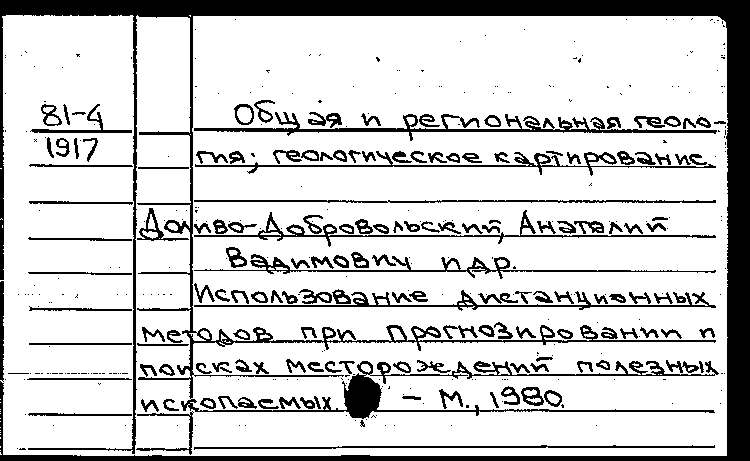 81-4 Общая и региональная геоло-
1917 гия; геологическое картирование.
Доливо-Добровольский, Анаталий
Вадимович и др.
Использование дистанционных
методов при прогнозировании и
поисках месторождений полезных
ископаемых. - М., 1980.